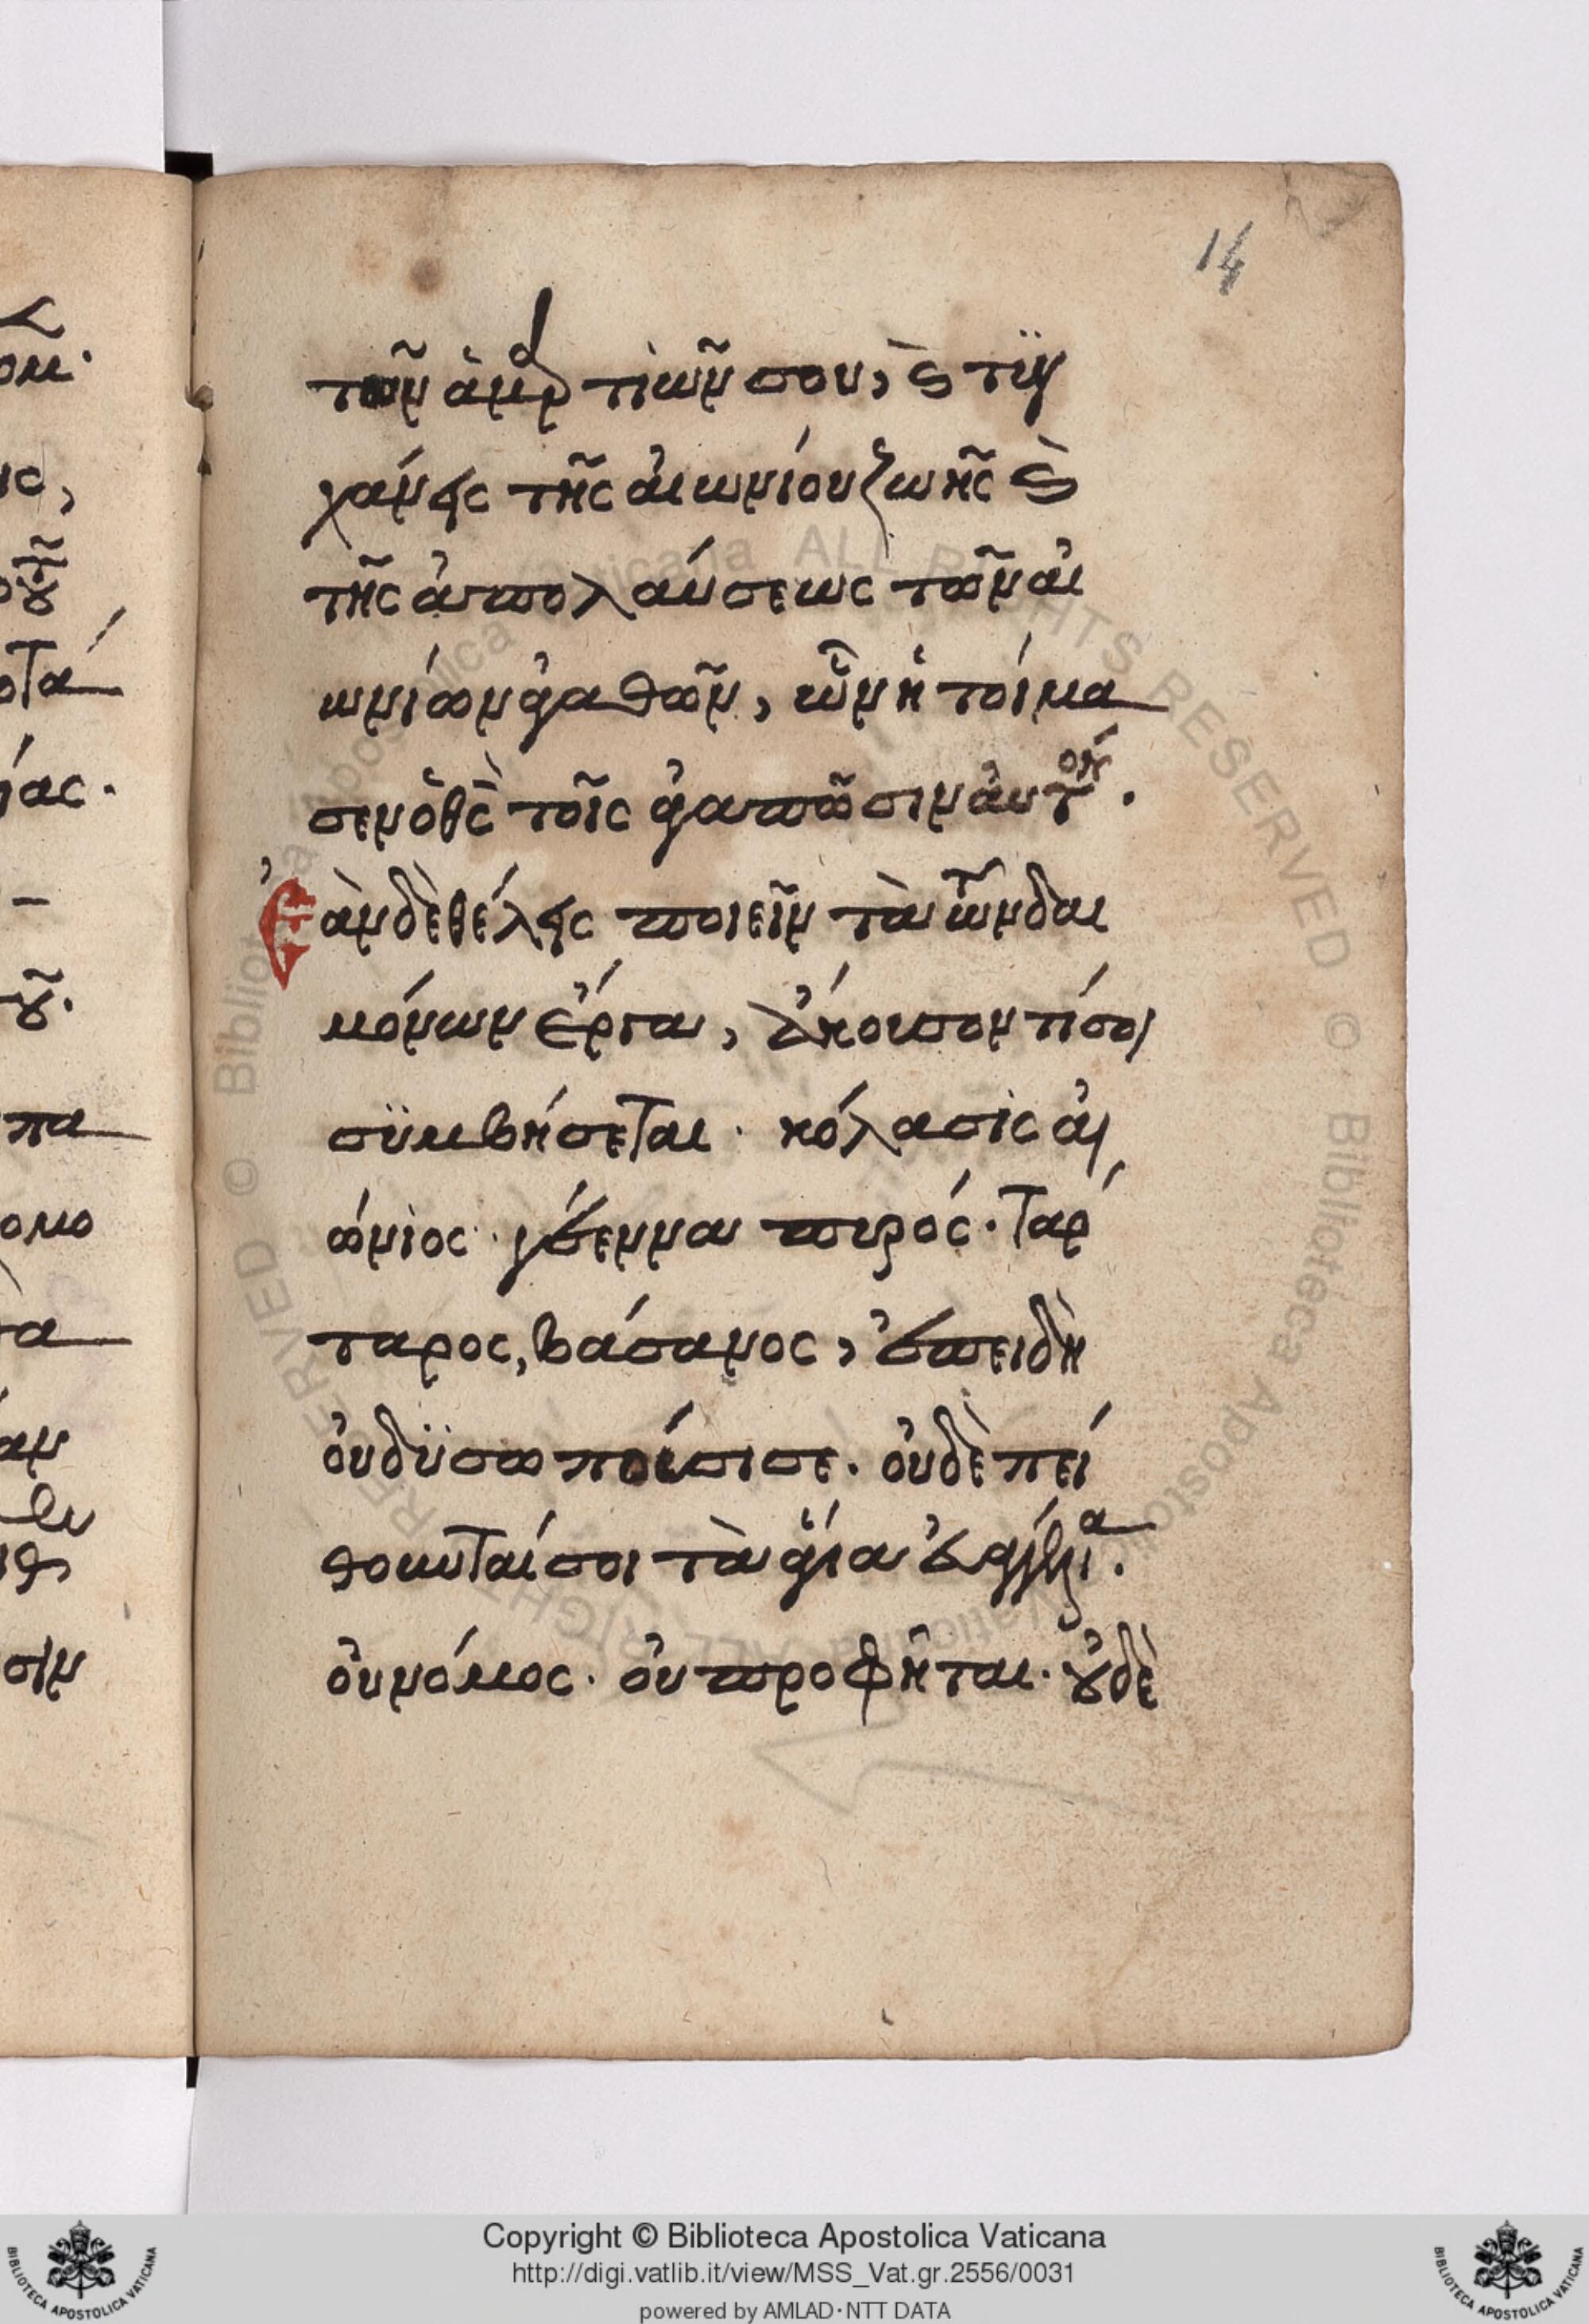 14
τῶν ἁμαρτιῶν σου, ϗ τυγ
χάνεις τῆς αἰωνίου ζωῆς ϗ
τῆς ἀπολαύσεως τῶν αἰ
ωνίων ἀγαθῶν, ὧν ἡτοίμα
σεν ὁ θς τοῖς ἀγαπῶσιν αὐτόν.
Ἐὰν δὲ θέλεις ποιεῖν τὰ τῶν δαι
μόνων ἔργα, ἄκουσον τί σοι
συμβήσεται. κόλασις αἰ
ώνιος. γέεννα πυρός. Ταρ
ταρος, βάσανος, ἐπειδὴ
οὐ δϋσωποίσι σε. οὐδὲ πεί
θουνταί σοι τὰ ἅγια εὐαγγέλια.
οὐ νόμος. οὐ προφῆται. οὐδὲ
Copyright © Biblioteca Apostolica Vaticana
http://digi.vatlib.it/view/MSS_Vat.gr.2556/0031
powered by AMLAD·NTT DATA